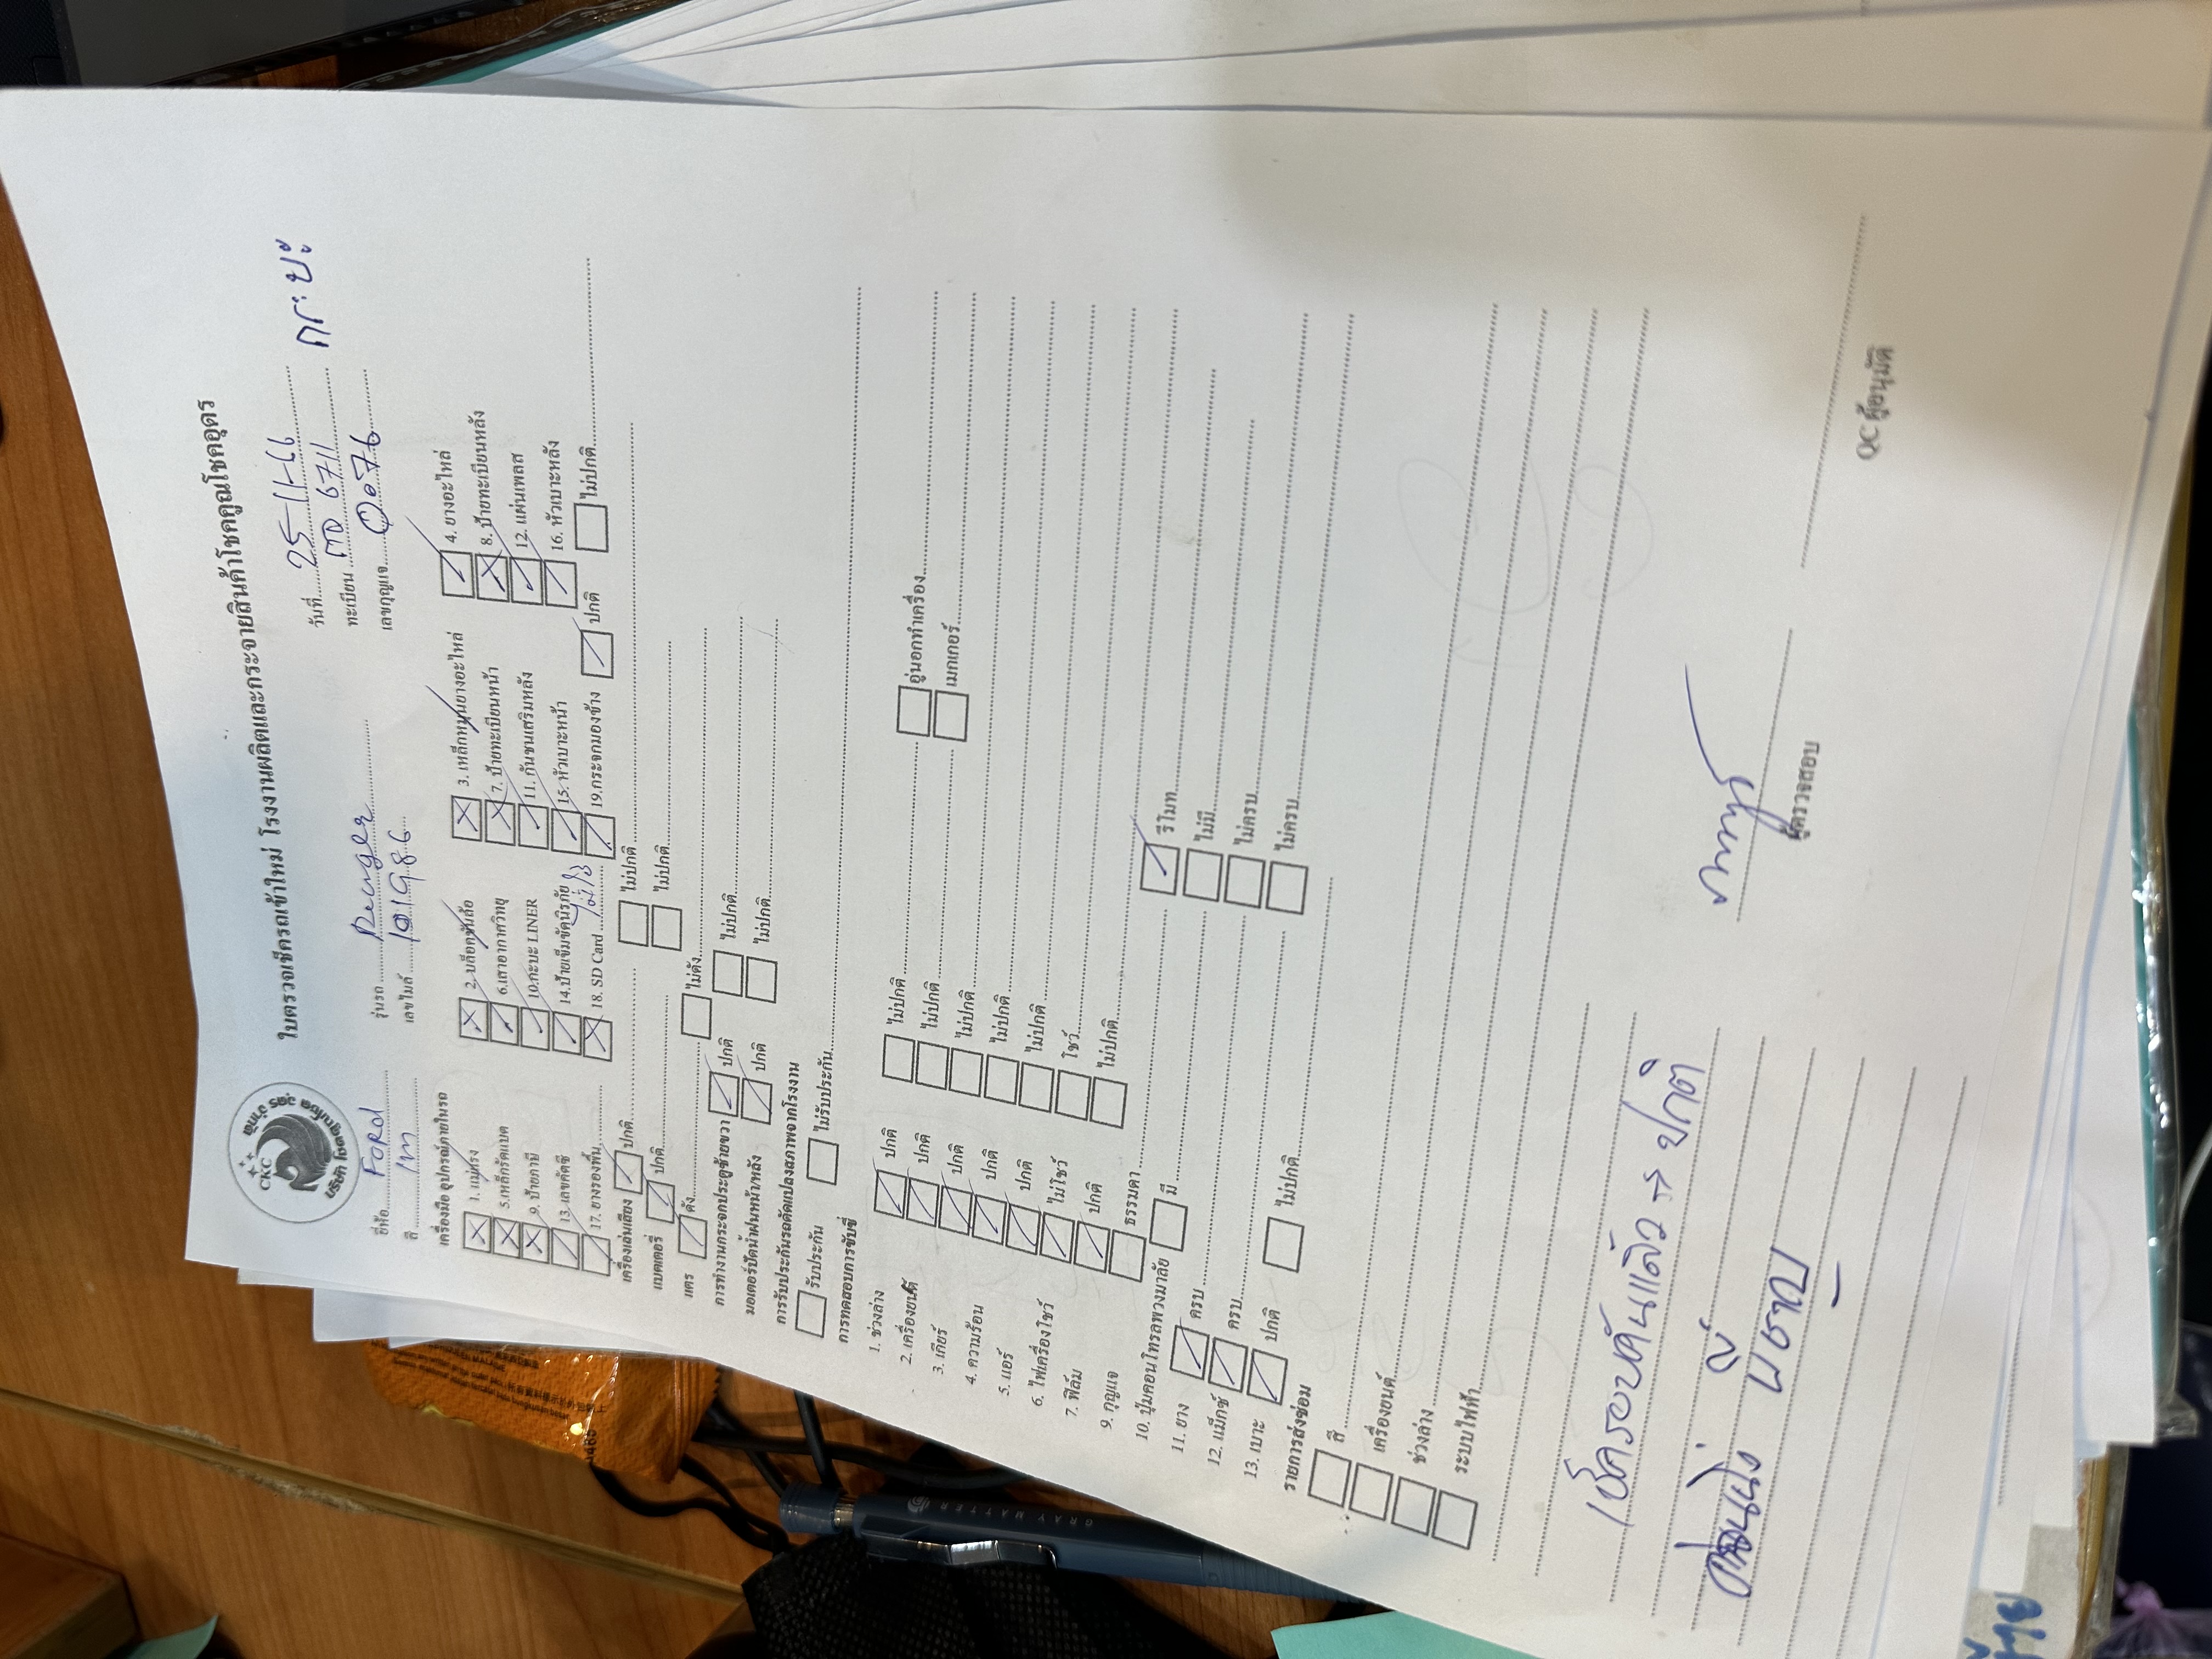 CKC
บริษัท โชคคูณโชค อุดร จำกัด
ใบตรวจเช็ครถเข้าใหม่ โรงงานผลิตและกระจายสินค้าโชคคูณโชคอุดร
วันที่ 25-11-66
ยี่ห้อ FORD รุ่นรถ Ranger ทะเบียน 6711 กระบะ
สี เทา เลขไมล์ 101986 เลขกุญแจ 0076
เครื่องมือ อุปกรณ์ภายในรถ
1. แม่แรง 2. บล็อคขันล้อ 3. เหล็กหมุนยางอะไหล่ 4. ยางอะไหล่
5.เหล็กรัดแบต 6.เสาอากาศวิทยุ 7. ป้ายทะเบียนหน้า 8. ป้ายทะเบียนหลัง
9. ป้ายภาษี 10.กะบะ LINER 11. กันชนเสริมหลัง 12. แผ่นเพลส
13. เลขคัตซี 14.ป้ายเข็มขัดนิรภัย 15. หัวเบาะหน้า 16. หัวเบาะหลัง
17. ยางรองพื้น 18. SD Card ไม่ใช้ 19.กระจกมองข้าง ปกติ ไม่ปกติ
เครื่องเล่นเสียง ปกติ ไม่ปกติ
แบตเตอรี่ ปกติ ไม่ปกติ
แตร ดัง ไม่ดัง
การทำงานกระจกประตูซ้ายขวา ปกติ ไม่ปกติ
มอเตอร์ปัดน้ำฝนหน้า/หลัง ปกติ ไม่ปกติ
การรับประกันรถดัดแปลงสภาพจากโรงงาน
รับประกัน ไม่รับประกัน
การทดสอบการขับขี่
1. ช่วงล่าง ปกติ ไม่ปกติ
2. เครื่องยนต์ ปกติ ไม่ปกติ อู่นอกทำเครื่อง
3. เกียร์ ปกติ ไม่ปกติ เมกเกอร์
4. ความร้อน ปกติ ไม่ปกติ
5. แอร์ ปกติ ไม่ปกติ
6. ไฟเครื่องโชว์ ไม่โชว์ โชว์
7. ฟิล์ม ปกติ ไม่ปกติ
9. กุญแจ ธรรมดา รีโมท
10. ปุ่มคอนโทรลพวงมาลัย มี ไม่มี
11. ยาง ครบ ไม่ครบ
12. แม็กซ์ ครบ ไม่ครบ
13. เบาะ ปกติ ไม่ปกติ
รายการส่งซ่อม
สี
เครื่องยนต์
ช่วงล่าง
ระบบไฟฟ้า
เช็ครอบคันแล้ว → ปกติ
ผู้ตรวจสอบ
QC ผู้อนุมัติ
GRAY MATTER